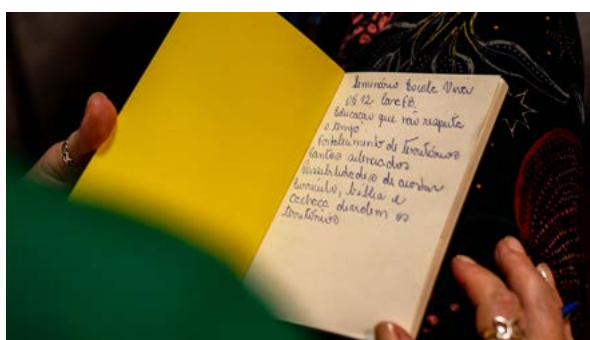 Seminário Escola Viva
Educação que não respeita
o tempo
Fortalecimento de territórios
Cantos alterados
Possibilidades de acordar
Currículo, bíblia e
cachaça dissolem os
territórios